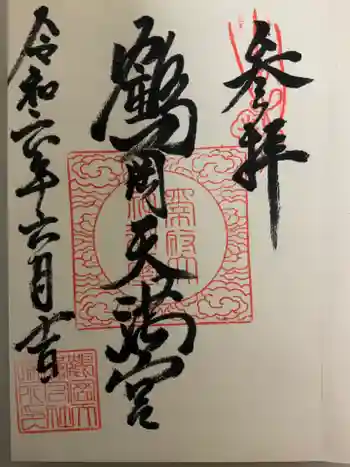 参拝
鶴岡天満宮
令和六年六月吉日